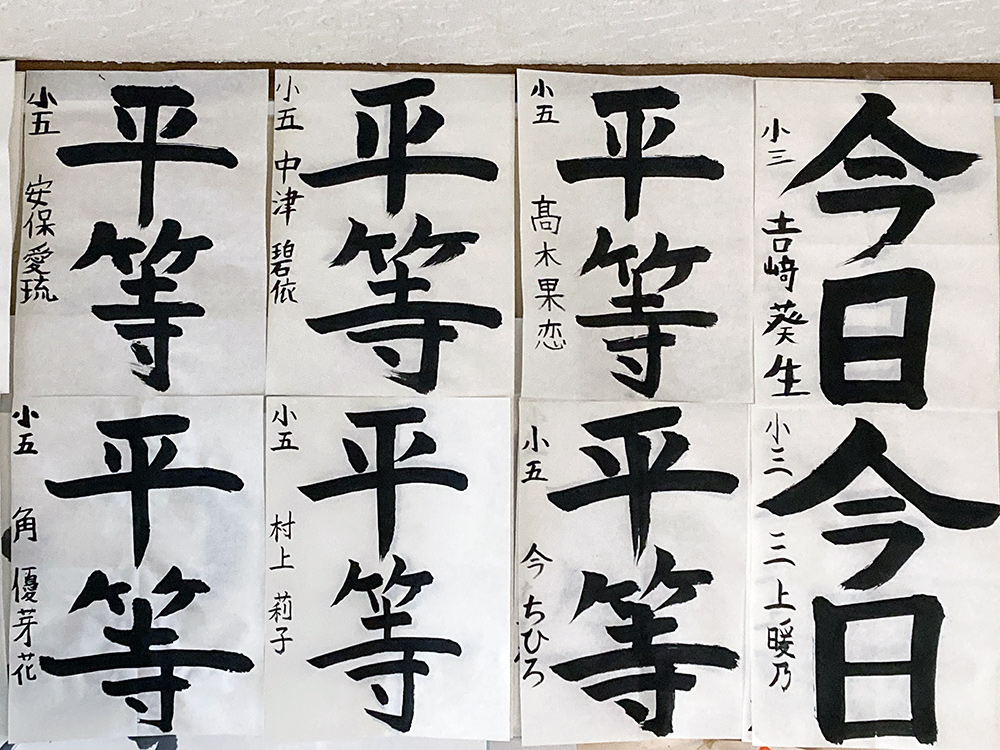 平等
小五 安保愛琉
平等
小五 中津碧依
平等
小五 髙木果恋
今日
小三 吉﨑葵生
平等
小五 角優芽花
平等
小五 村上莉子
平等
小五 今ちひろ
今日
小三 三上暖乃